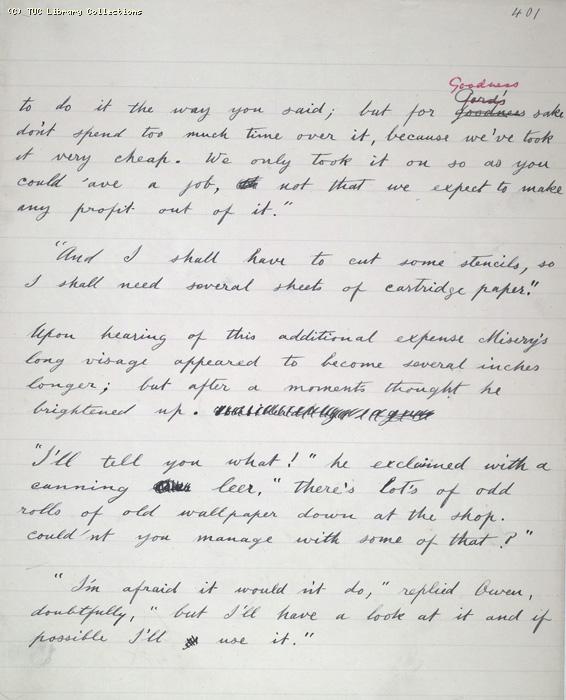 (C) TUC Library Collections
401
Goodness
Gord's
to do it the way you said; but for goodness sake
dont spend too much time over it, because we've took
it very cheap. We only took it on so as you
could 'ave a job, not that we expect to make
any profit out of it."
"And I shall have to cut some stencils, so
I shall need several sheets of cartridge paper."
Upon hearing of this additional expense Misery's
long visage appeared to become several inches
longer; but after a moments thought he
brightened up.
"I'll tell you what!" he exclaimed with a
cunning leer, "there's lot's of odd
rolls of old wallpaper down at the shop.
could'nt you manage with some of that?"
"I'm afraid it would n't do," replied Owen,
doubtfully, "but I'll have a look at it and if
possible I'll use it."